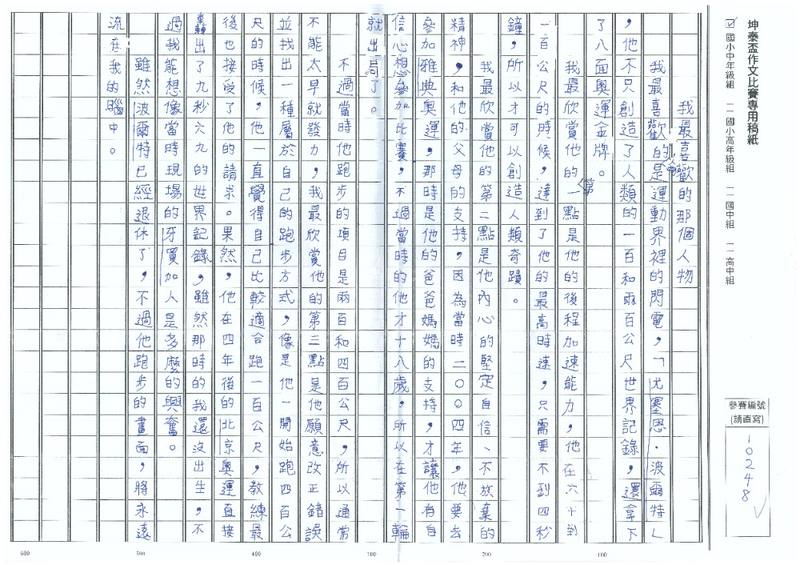 坤泰盃作文比賽專用稿紙
☑國小中年級組 □國小高年級組 □國中組 □高中組
參賽編號
(請直寫)
10248
我最喜歡的那個人物
我最喜歡的人物是運動界裡的閃電，「尤塞恩·波爾特」
，他不只創造了人類的一百和兩百公尺世界記錄，還拿下
了八面奧運金牌。
我最欣賞他的第一點是他的後程加速能力，他在六十到
一百公尺的時候，達到了他的最高時速，只需要不到四秒
鐘，所以才可以創造人類奇蹟。
我最欣賞他的第二點是他內心的堅定自信、不放棄的
精神，和他的父母的支持，因為當時二〇〇四年，他要去
參加雅典奧運，那時是他的爸爸媽媽的支持，才讓他有自
信心想參加比賽，不過當時的他才十八歲，所以在第一輪
就出局了。
不過當時他跑步的項目是兩百和四百公尺，所以通常
不能太早就發力，我最欣賞他的第三點是他願意改正錯誤
並找出一種屬於自己的跑步方式，像是他一開始跑四百公
尺的時候，他一直覺得自己比較適合跑一百公尺，教練最
後也接受了他的請求。果然，他在四年後的北京奧運直接
轟出了九秒六九的世界記錄，雖然那時的我還沒出生，不
過我能想像當時現場的牙買加人是多麼的興奮。
雖然波爾特已經退休了，不過他跑步的畫面，將永遠
流在我的腦中。
100
200
300
400
500
600